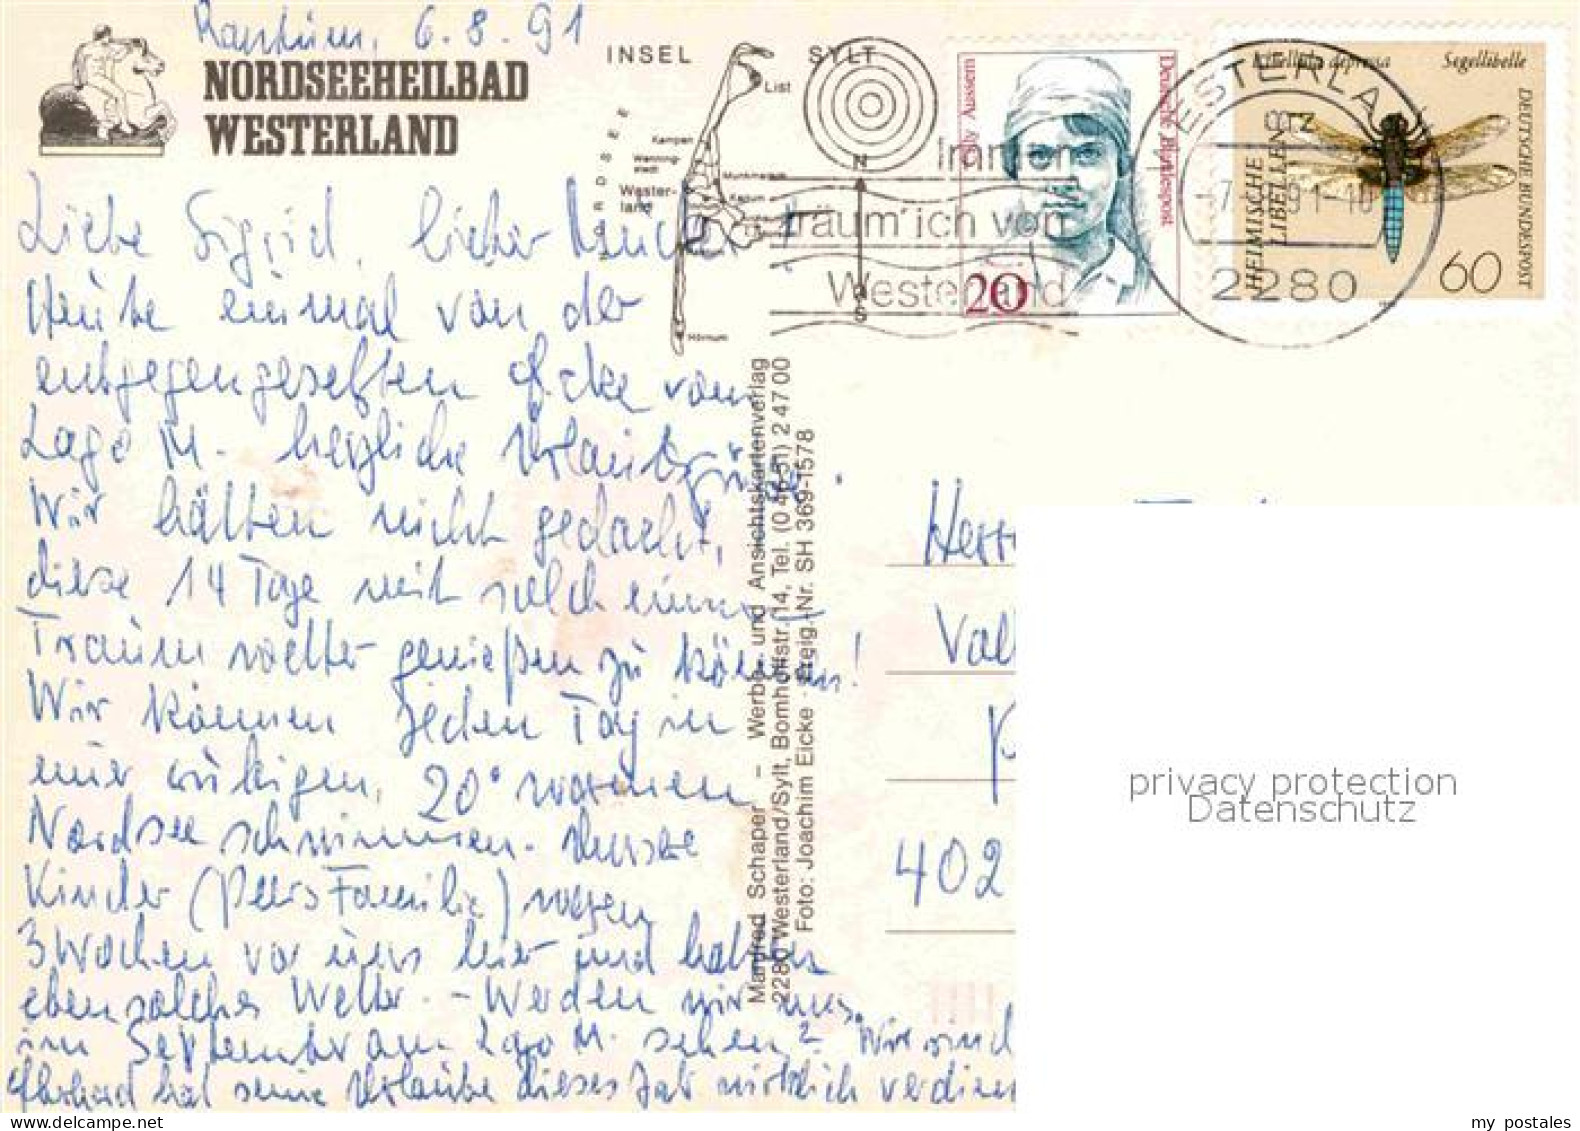 Rantum, 6.8.91
NORDSEEHEILBAD
WESTERLAND
INSEL SYLT
NORDSEE
List
Kampen
Wenning-
stedt
Wester-
land
Munkmarsch
Keitum
Hörnum
N
S
Immer
träum' ich von
Westerland
Cilly Aussem
Deutsche Bundespost
20
WESTERLAND
2280
Libellula depressa Segellibelle
HEIMISCHE
LIBELLEN
DEUTSCHE BUNDESPOST
60
Liebe Sigrid, lieber
Heute einmal von der
entgegengesetzten Ecke vom
Lago M. herzliche Urlaubsgrüße.
Wir hätten nicht gedacht,
diese 14 Tage mit solch einem
Traumwetter genießen zu können!
Wir können jeden Tag in
einer ruhigen, 20° warmen
Nordsee schwimmen. Unsere
Kinder (Peers Familie) waren
3 Wochen vor uns hier und hatten
ebensolches Wetter. - Werden wir uns
im September am Lago M. sehen? Wir sind
Ekkehard hat seine Urlaube dieses Jahr wirklich verdien
Manfred Schaper – Werbe- und Ansichtskartenverlag
2280 Westerland/Sylt, Bomhoffstr. 14, Tel. (0 46 51) 2 47 00
Foto: Joachim Eicke · Freig.-Nr. SH 369-1578
Herr
Val
402
privacy protection
Datenschutz
my postales